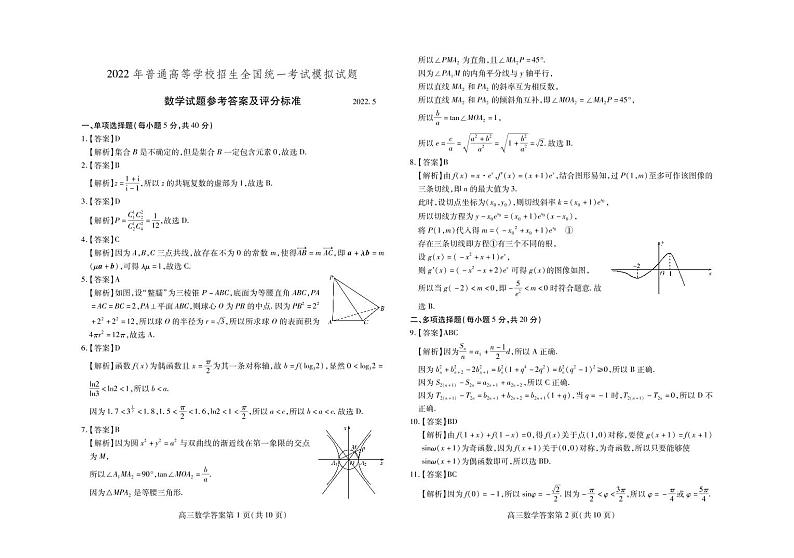 2022 年普通高等学校招生全国统一考试模拟试题
数学试题参考答案及评分标准 2022. 5
一、单项选择题(每小题 5 分,共 40 分)
1.【答案】D
【解析】集合 B 是不确定的,但是集合 B 一定包含元素 0,故选 D.
2.【答案】B
【解析】z=(1+i)/(i-1),所以 z 的共轭复数的虚部为 1,故选 B.
3.【答案】D
【解析】
,故选 D.
4.【答案】C
【解析】因为 A,B,C 三点共线,故存在不为 0 的常数 m,使得AB=m AC,即 a+λb=m
(μa+b),可得 λμ=1,故选 C.
5.【答案】A
【解析】如图,设“鳖臑”为三棱锥 P-ABC,底面为等腰直角 ABC,PA
=AC=BC=2,PA⊥平面 ABC,则球心 O 为 PB 的中点. 因为 PB²=2²
+2²+2²=12,所以球 O 的半径为 r=√3,所以所求球 O 的表面积为
4πr²=12π,故选 A.
P
B
A
C
6.【答案】D
【解析】函数 f(x)为偶函数且 x=π/2 为其一条对称轴,故 b=f(log₃2),显然 0<log₃2=
ln2/ln3<ln2<1,所以 b<a.
因为 1.7<
<1.8,1.5<π/2<1.6,ln2<1<π/2,所以 a<c,所以 b<a<c. 故选 D.
7.【答案】B
【解析】因为圆 x²+y²=a² 与双曲线的渐近线在第一象限的交点
为 M,
所以∠A₁MA₂=90°,tan∠MOA₂=b/a.
因为△MPA₂ 是等腰三角形.
高三数学答案第 1 页(共 10 页)
所以∠PMA₂ 为直角,且∠MA₂P=45°.
因为∠PA₂M 的内角平分线与 y 轴平行,
所以直线 MA₂ 和 PA₂ 的斜率互为相反数,
所以直线 MA₂ 和 PA₂ 的倾斜角互补,即∠MOA₂=∠MA₂P=45°,
所以b/a=tan∠MOA₂=1,
所以 e=c/a=√((a²+b²)/a²)=√(1+b²/a²)=√2. 故选 B.
8.【答案】B
【解析】由 f(x)=x·eˣ,f′(x)=(x+1)eˣ,结合图形易知,过 P(1,m)至多可作该图像的
三条切线,即 n 的最大值为 3.
此时,设切点坐标为(x₀,y₀),则切线斜率 k=(x₀+1)e^x₀,
所以切线方程为 y-x₀e^x₀=(x₀+1)e^x₀(x-x₀),
将 P(1,m)代入得 m=(-x₀²+x₀+1)e^x₀ ①
存在三条切线即方程①有三个不同的根,
设 g(x)=(-x²+x+1)eˣ,
则 g′(x)=(-x²-x+2)eˣ 可得 g(x)的图像如图,
所以当 g(-2)<m<0,即-5/e²<m<0 时符合题意. 故
选 B.
y
-2
O
1
x
二、多项选择题(每小题 5 分,共 20 分)
9.【答案】ABC
【解析】因为Sₙ/n=a₁+(n-1)/2 d,所以 A 正确.
因为
≥0,所以 B 正确.
因为 S₂₍ₙ₊₁₎-S₂ₙ=a₂ₙ₊₁+a₂ₙ₊₂,所以 C 正确.
因为 T₂₍ₙ₊₁₎-T₂ₙ=b₂ₙ₊₁+b₂ₙ₊₂=b₂ₙ₊₁(1+q),当 q=-1 时,T₂₍ₙ₊₁₎-T₂ₙ=0,所以 D 不
正确.
10.【答案】BD
【解析】由 f(1+x)+f(1-x)=0,得 f(x)关于点(1,0)对称,要使 g(x+1)=f(x+1)
sinω(x+1)为奇函数,因为 f(x+1)关于(0,0)对称,为奇函数,所以只要能够使
sinω(x+1)为偶函数即可,所以选 BD.
11.【答案】BC
【解析】因为 f(0)=-1,所以 sinφ=-√2/2. 因为-π/2<φ<3π/2,所以 φ=-π/4 或 φ=5π/4.
高三数学答案第 2 页(共 10 页)